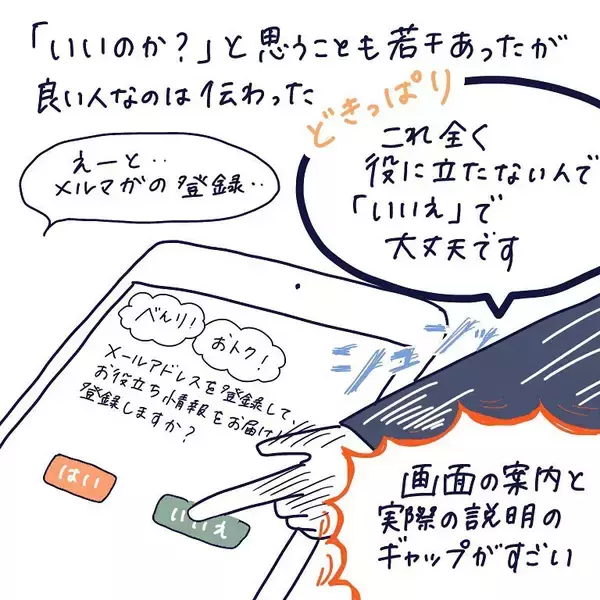 「いいのか?」と思うことも若干あったが
良い人なのは伝わった
どきっぱり
これ全く
役に立たないんで
「いいえ」で
大丈夫です
えーと‥
メルマガの登録‥
べんり!
おトク!
メールアドレスを登録して、
お役立ち情報をお届け
登録しますか?
シュッ
はい
いいえ
画面の案内と
実際の説明の
ギャップがすごい